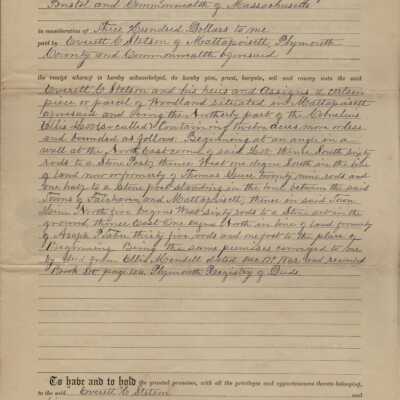 Bristol and Commonwealth of Massachusetts
in consideration of Three Hundred Dollars to me
paid by Everett C Stetson of Mattapoisett, Plymouth
County and Commonwealth aforesaid
the receipt whereof is hereby acknowledged, do hereby give, grant, bargain, sell and convey unto the said
Everett C Stetson and his heirs and Assigns a certain
piece or parcel of Woodland situated in Mattapoisett
aforesaid and being the Northerly part of the Cornelius
Ellis Lot so called & Containing twelve acres more or less
and bounded as follows. Beginning at an angle on a
wall at the North East corner of said Lot. thence South sixty
rods to a Stone Post, thence West one degree South in the line
of Land now or formerly of Thomas twenty nine rods and
one half to a Stone post standing in the line between the said
Towns of Fairhaven and Mattapoisett, thence in said Town
Line North five degrees West sixty rods to a Stone set in the
ground thence East One degree North in line of Land formerly
of thirty five rods and one foot to the place of
Beginning. Being the same premises conveyed to me
by deed from Ellis Mendell dated and recorded
Book page Plymouth Registry of Deeds
To have and to hold the granted premises, with all the privileges and appurtenances thereto belonging,
to the said Everett C Stetson and